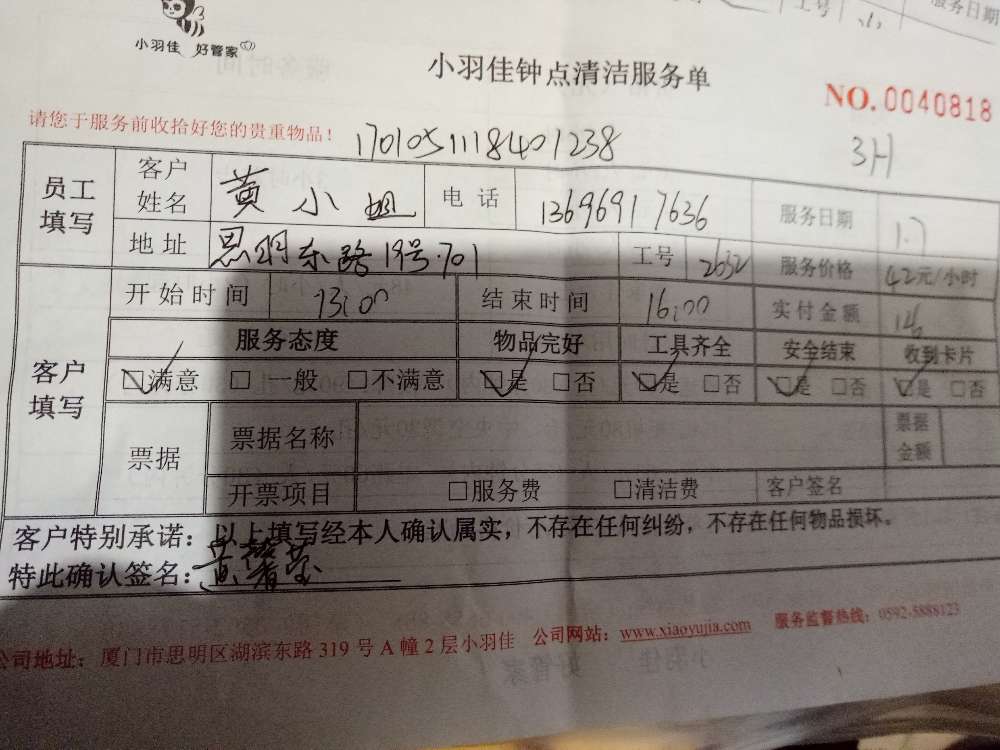 工号
服务日期
小羽佳 好管家
小羽佳钟点清洁服务单
NO. 0040818
请您于服务前收拾好您的贵重物品！
1701051118401238
3H
员工填写
客户姓名 黄小姐 电话 13696917636 服务日期 1.7
地址 思明东路19号.701 工号 2632 服务价格 42元/小时
客户填写
开始时间 13:00 结束时间 16:00 实付金额
服务态度 物品完好 工具齐全 安全结束 收到卡片
☑满意 □一般 □不满意 ☑是 □否 ☑是 □否 ☑是 □否 ☑是 □否
票据 票据名称 票据金额
开票项目 □服务费 □清洁费 客户签名
客户特别承诺：以上填写经本人确认属实，不存在任何纠纷，不存在任何物品损坏。
特此确认签名：黄馨莹
公司地址：厦门市思明区湖滨东路 319 号 A 幢 2 层小羽佳 公司网站：www.xiaoyujia.com 服务监督热线：0592-5888123